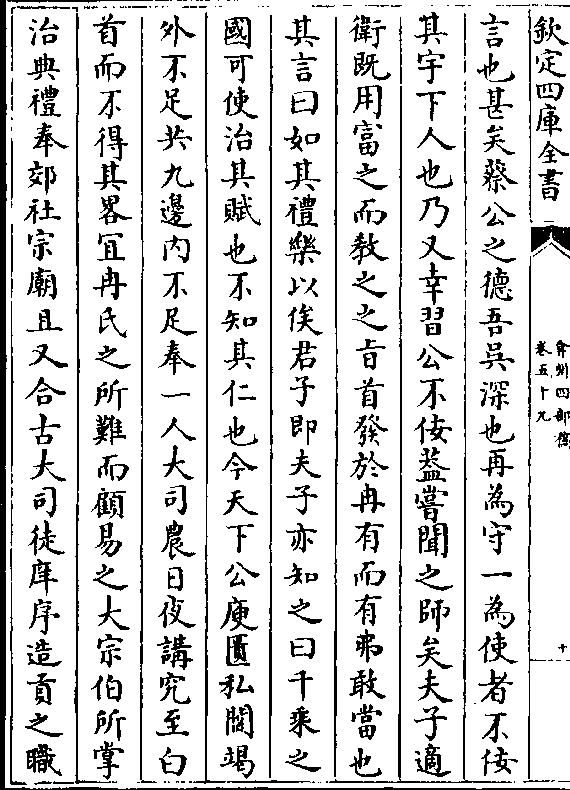 欽定四庫全書
弇州四部稿
卷五十九
十
言也甚矣蔡公之德吾吳深也再為守一為使者不佞
其宇下人也乃又幸習公不佞葢嘗聞之師矣夫子適
衛既用富之而教之之㫖首發於冉有而有弗敢當也
其言曰如其禮樂以俟君子即夫子亦知之曰千乗之
國可使治其賦也不知其仁也今天下公庾匱私閭竭
外不足共九邊内不足奉一人大司農日夜講究至白
首而不得其畧冝冉氏之所難而顧易之大宗伯所掌
治典禮奉郊社宗廟且又合古大司徒庠序造貢之職